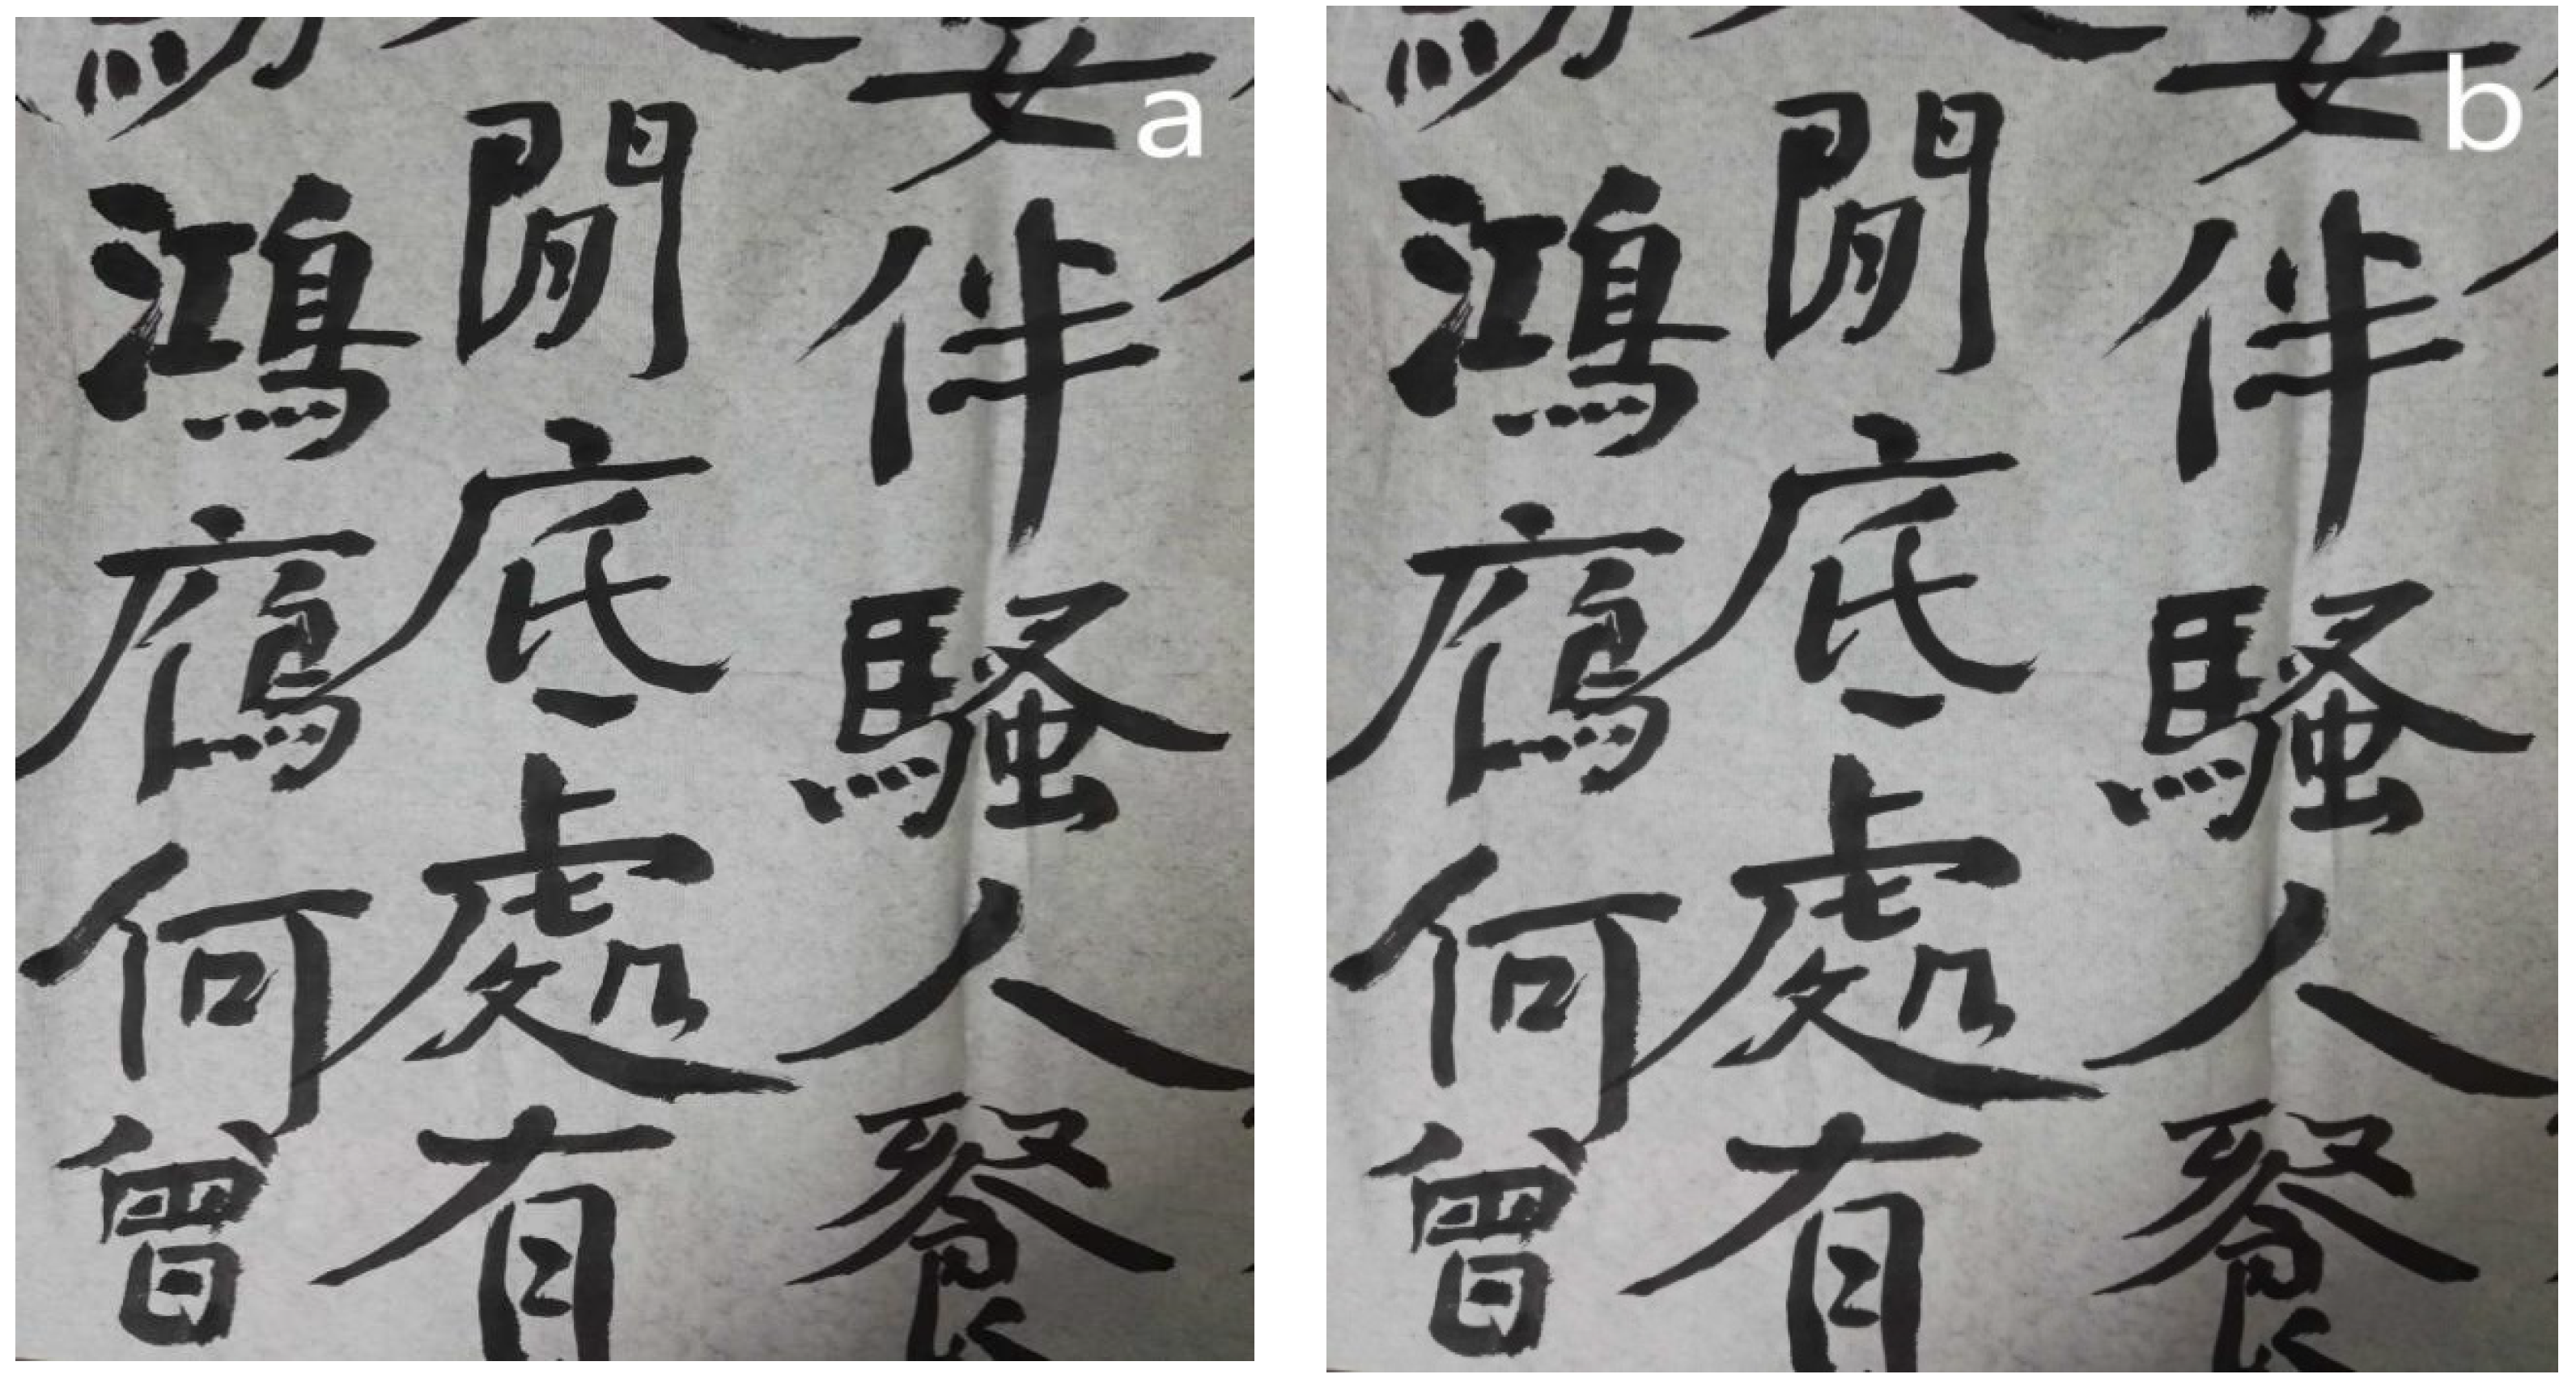 a
伴騷人餐
閒底處有
鴻鴈何曾
b
伴騷人餐
閒底處有
鴻鴈何曾